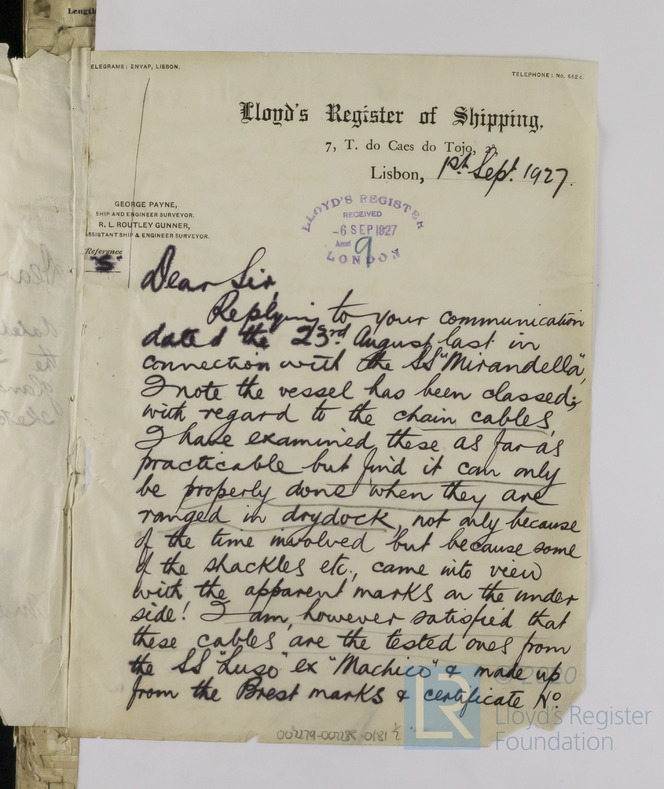 Length
TELEGRAMS: ENYAP, LISBON.
TELEPHONE: No. 552 c.
Lloyd's Register of Shipping,
7, T. do Caes do Tojo,
Lisbon, 1st Sept. 1927.
GEORGE PAYNE,
SHIP AND ENGINEER SURVEYOR.
R. L. ROUTLEY GUNNER,
ASSISTANT SHIP & ENGINEER SURVEYOR.
Reference
LLOYD'S REGISTER
RECEIVED
-6 SEP 1927
9
LONDON
Dear Sir
Replying to your communication
dated the 23rd August last in
connection with the SS "Mirandella",
I note the vessel has been classed;
with regard to the chain cables,
I have examined these as far as
practicable but find it can only
be properly done when they are
ranged in drydock, not only because
of the time involved but because some
of the shackles etc., came into view
with the apparent marks on the under
side! I am, however satisfied that
these cables are the tested ones from
the SS "Luso" ex "Machico" & made up
from the Brest marks & certificate No.
© 2020
LR
Lloyd's Register
Foundation